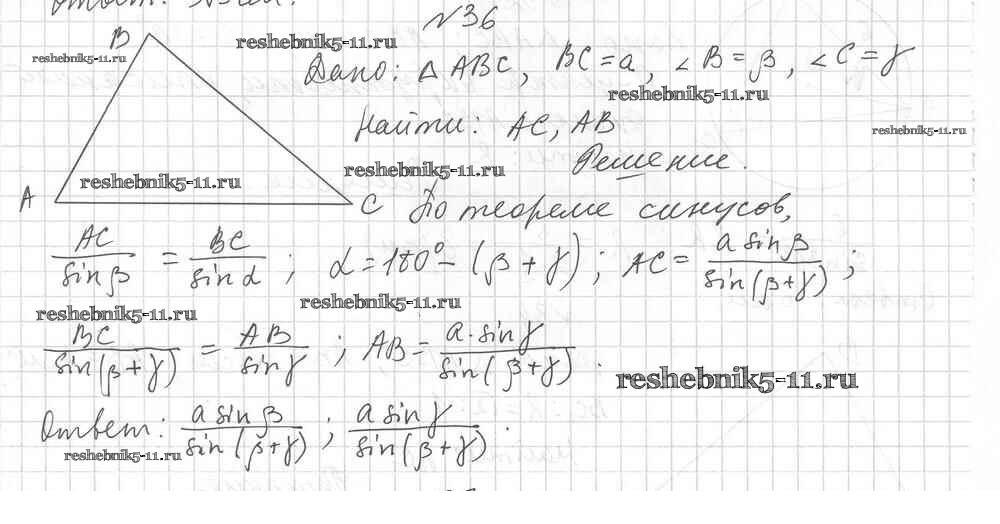 №36
B
reshebnik5-11.ru
reshebnik5-11.ru
Дано: △ ABC, BC = a, ∠B = β, ∠C = γ
reshebnik5-11.ru
Найти: AC, AB
reshebnik5-11.ru
Решение.
reshebnik5-11.ru
reshebnik5-11.ru
A
C По теореме синусов,
AC/sin β = BC/sin α ; α = 180° − (β + γ) ; AC = a sin β/sin(β+γ) ;
reshebnik5-11.ru
reshebnik5-11.ru
BC/sin(β+γ) = AB/sin γ ; AB = a·sin γ/sin(β+γ) .
reshebnik5-11.ru
Ответ: a sin β/sin(β+γ) ; a sin γ/sin(β+γ) .
reshebnik5-11.ru